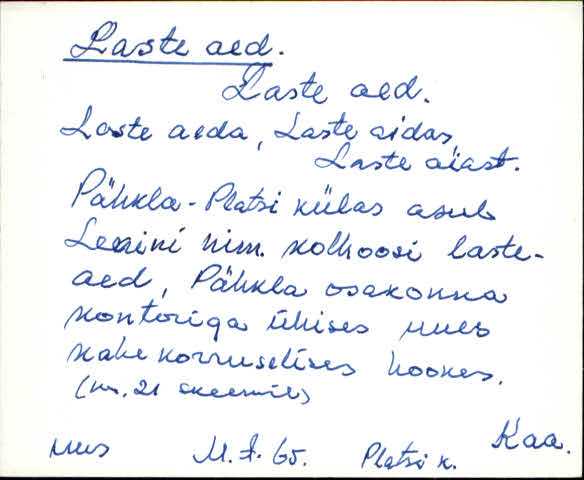 Laste aed.
Laste aed.
Laste aeda, Laste aidas,
Laste aiast.
Pähkla-Platsi külas asub
Lenini nim. kolhoosi laste-
aed, Pähkla osakonna
kontoriga ühises uues
kahekorruselises hoones.
(nr. 21 skeemil)
uus M. J. 65. Platsi k. Kaa.